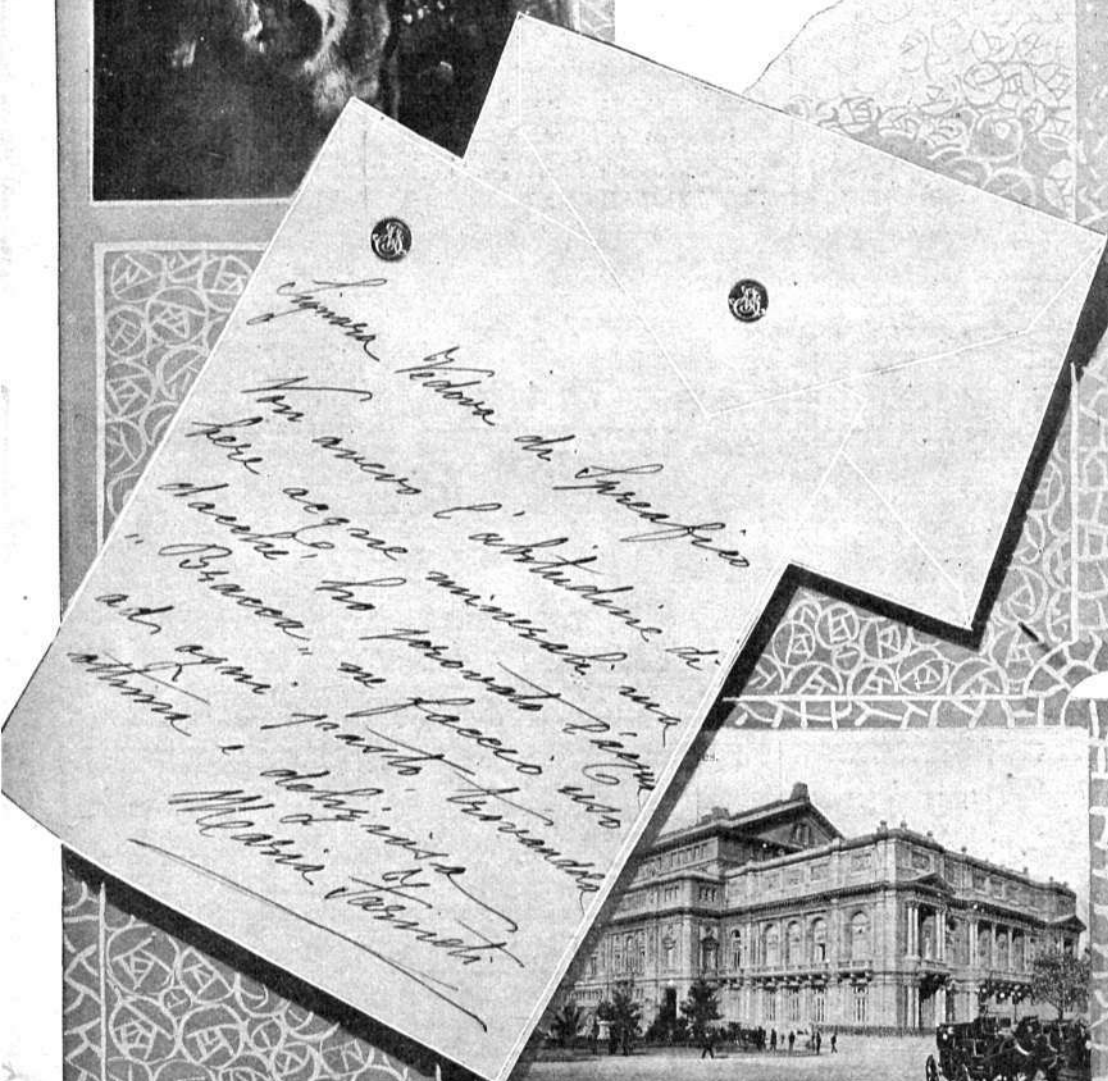 Signora Vedova di Spreafico
Non avevo l'abitudine di
bere acque minerali ma
dacchè ho provato l'acqua
"Bracca" ne faccio uso
ad ogni pasto trovandola
ottima e deliziosa
Maria Farneti